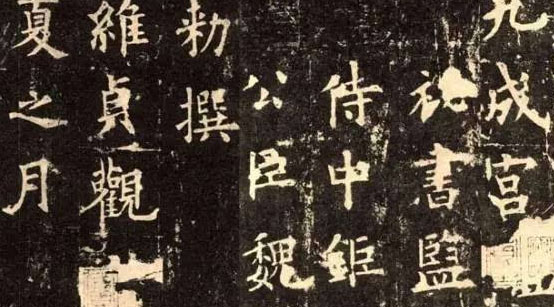 九成宮
祕書監
侍中鉅
公臣魏
勑撰
維貞觀
夏之月